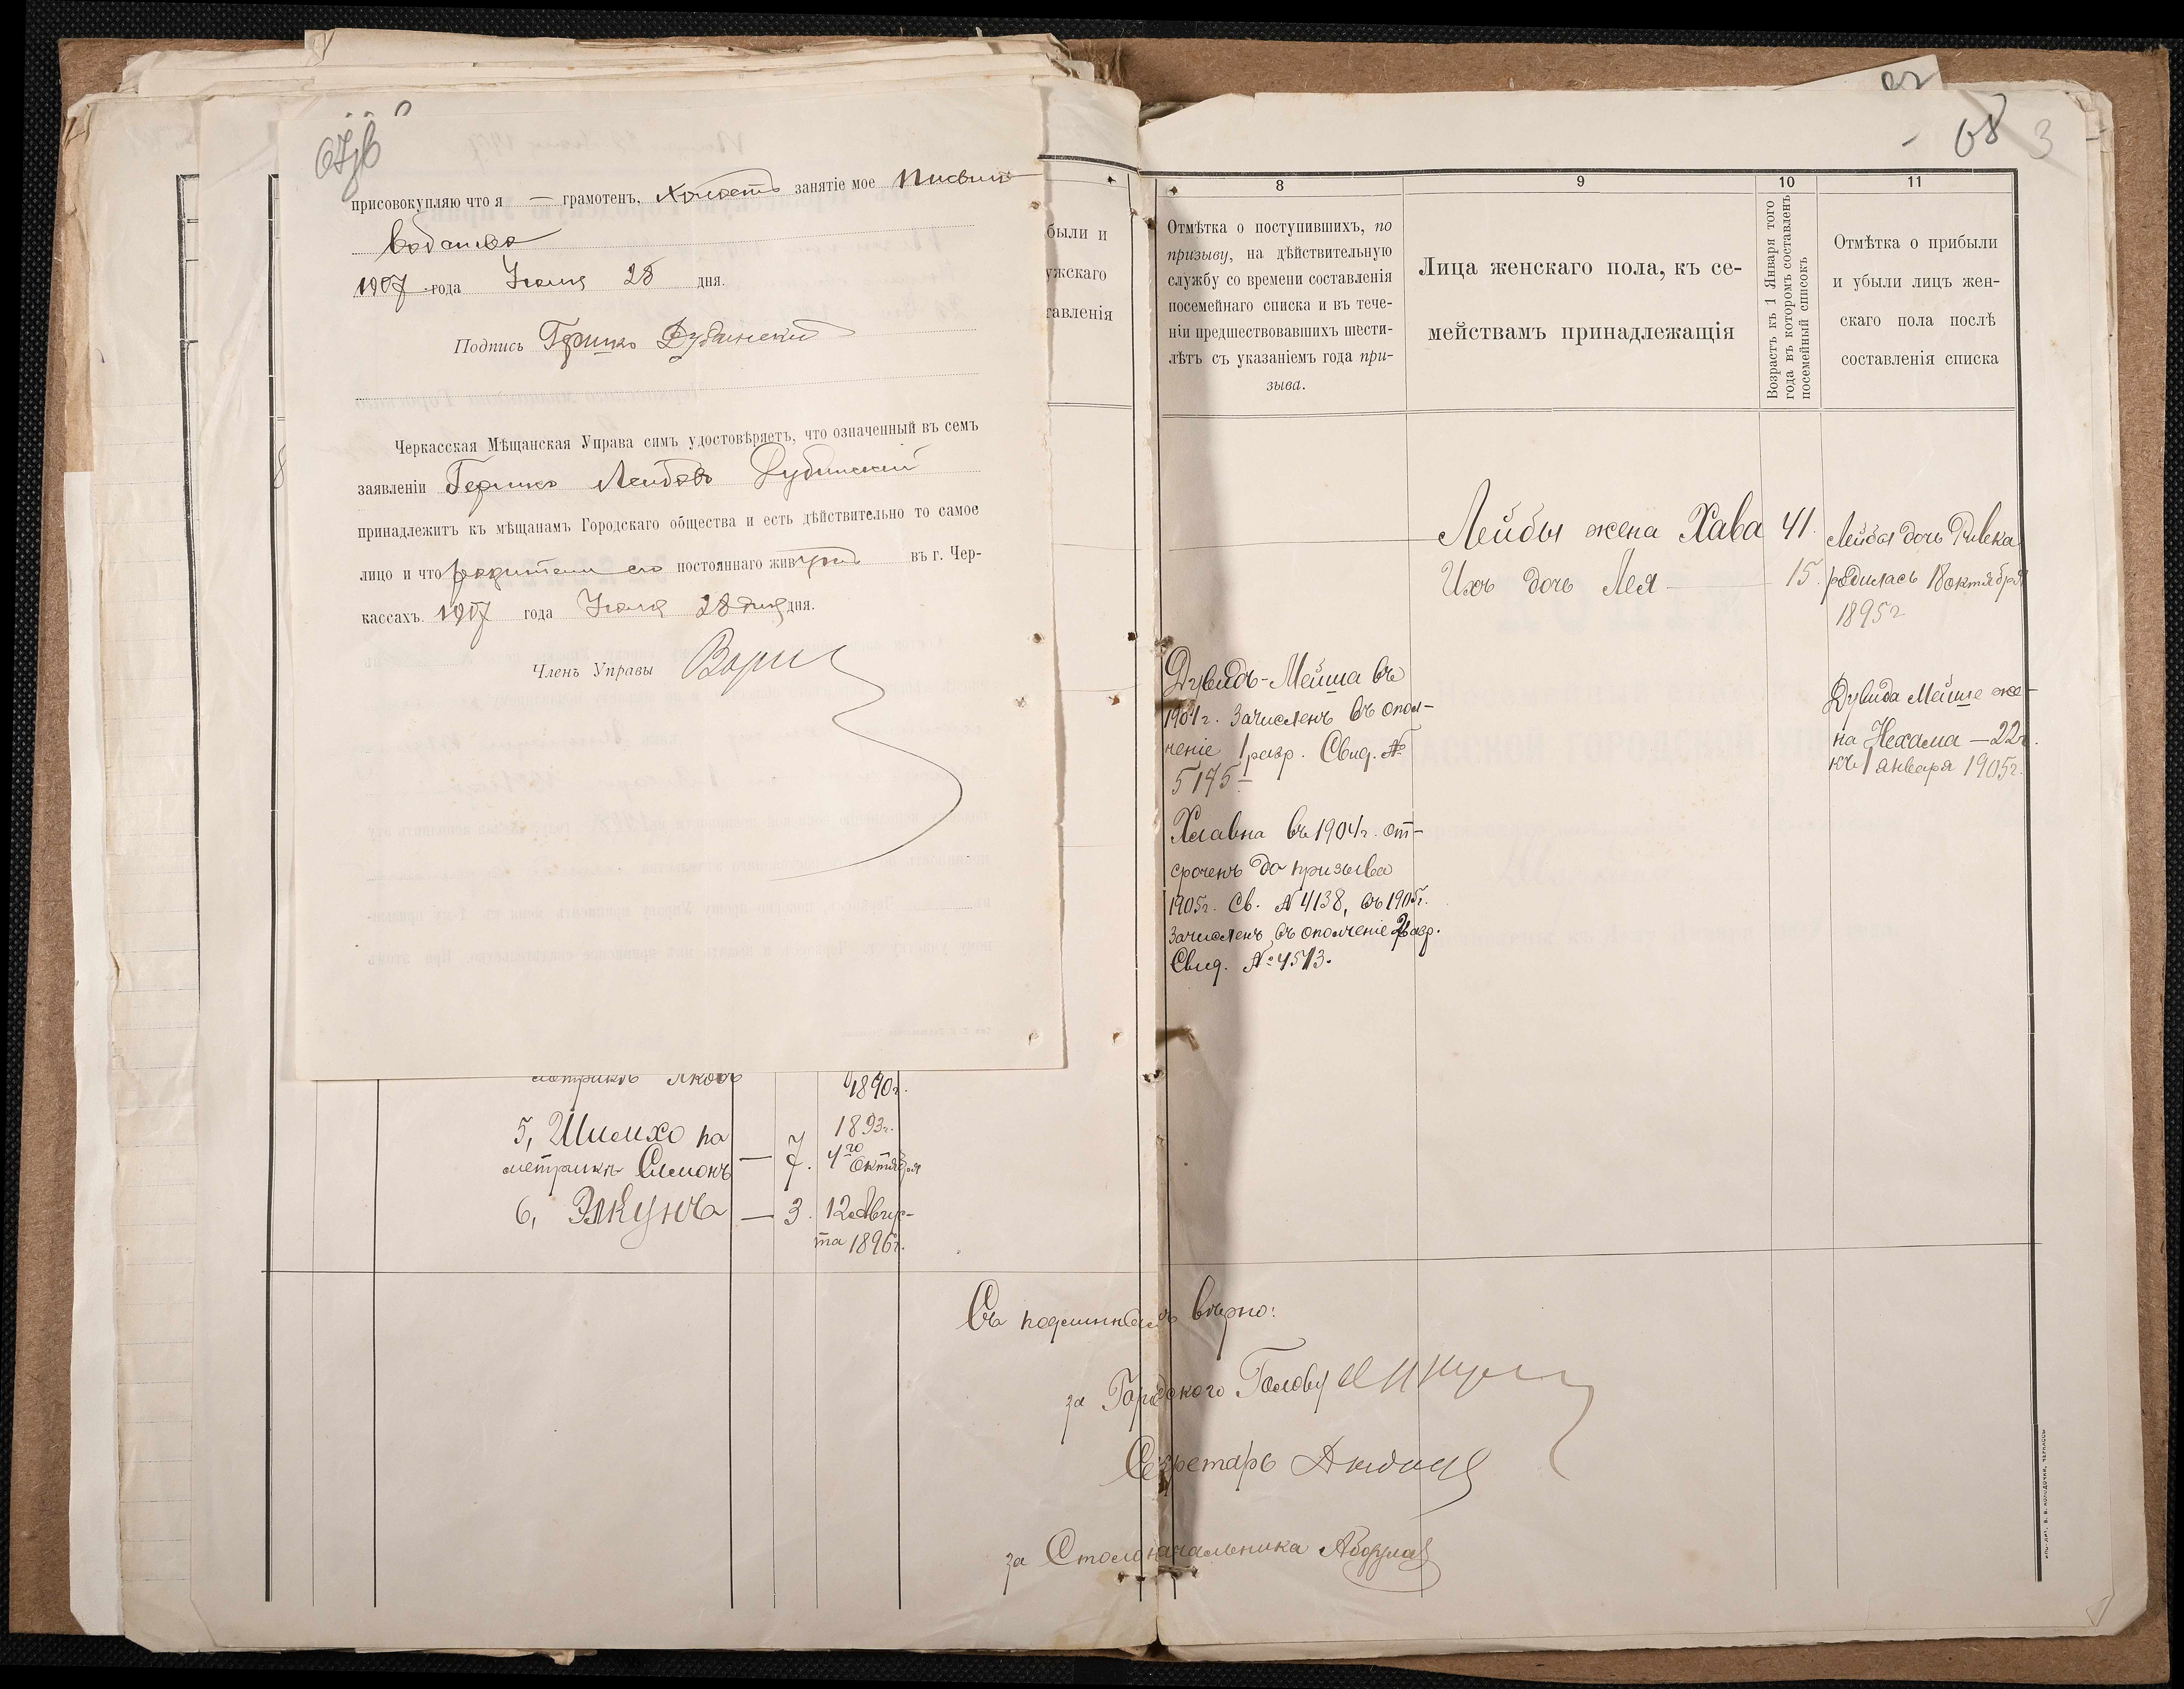 67об
присовокупляю что я — грамотенъ, холостъ занятіе мое
водство
1907 года Іюля 28 дня.
Подпись Гершко Дубинскій
Черкасская Мѣщанская Управа симъ удостовѣряетъ, что означенный въ семъ
заявленіи Гершко Лейбовъ Дубинскій
принадлежитъ къ мѣщанамъ Городскаго общества и есть дѣйствительно то самое
лицо и что родители его постояннаго живутъ въ г. Чер-
кассахъ. 1907 года Іюля 28 дня дня.
Членъ Управы
были и
ужскаго
тавленія
метрикѣ Яковъ
1890г.
5, Шимхо по 1893г.
метрикѣ Симонъ — 7. 4го Октября
6, Элкуна — 3. 12 Авгус-
та 1896г.
68 3
8 9 10 11
Отмѣтка о поступившихъ, по
призыву, на дѣйствительную
службу со времени составленія
посемейнаго списка и въ тече-
ніи предшествовавшихъ шести-
лѣтъ съ указаніемъ года при-
зыва.
Лица женскаго пола, къ се-
мействамъ принадлежащія
Возрастъ къ 1 Января того
года въ которомъ составленъ
посемейный списокъ
Отмѣтка о прибыли
и убыли лицъ жен-
скаго пола послѣ
составленія списка
Лейбы жена Хава 41.
Ихъ дочь Лея — 15.
Лейбы дочь Ривека
родилась 18 октября
1895г
Дувидъ-Мейша въ
1904г. зачисленъ въ опол-
ченіе 1 разр. Свид. №
5175
Хлавна въ 1904г. от-
сроченъ до призыва
1905г. Св. № 4138, въ 1905г.
зачисленъ въ ополченіе 2 разр.
Свид. № 4513.
Дувида Мейше же-
на Нехама — 22г.
къ 1 января 1905г.
Съ подлиннымъ вѣрно:
за Городского Голову
Секретарь
за Столоначальника